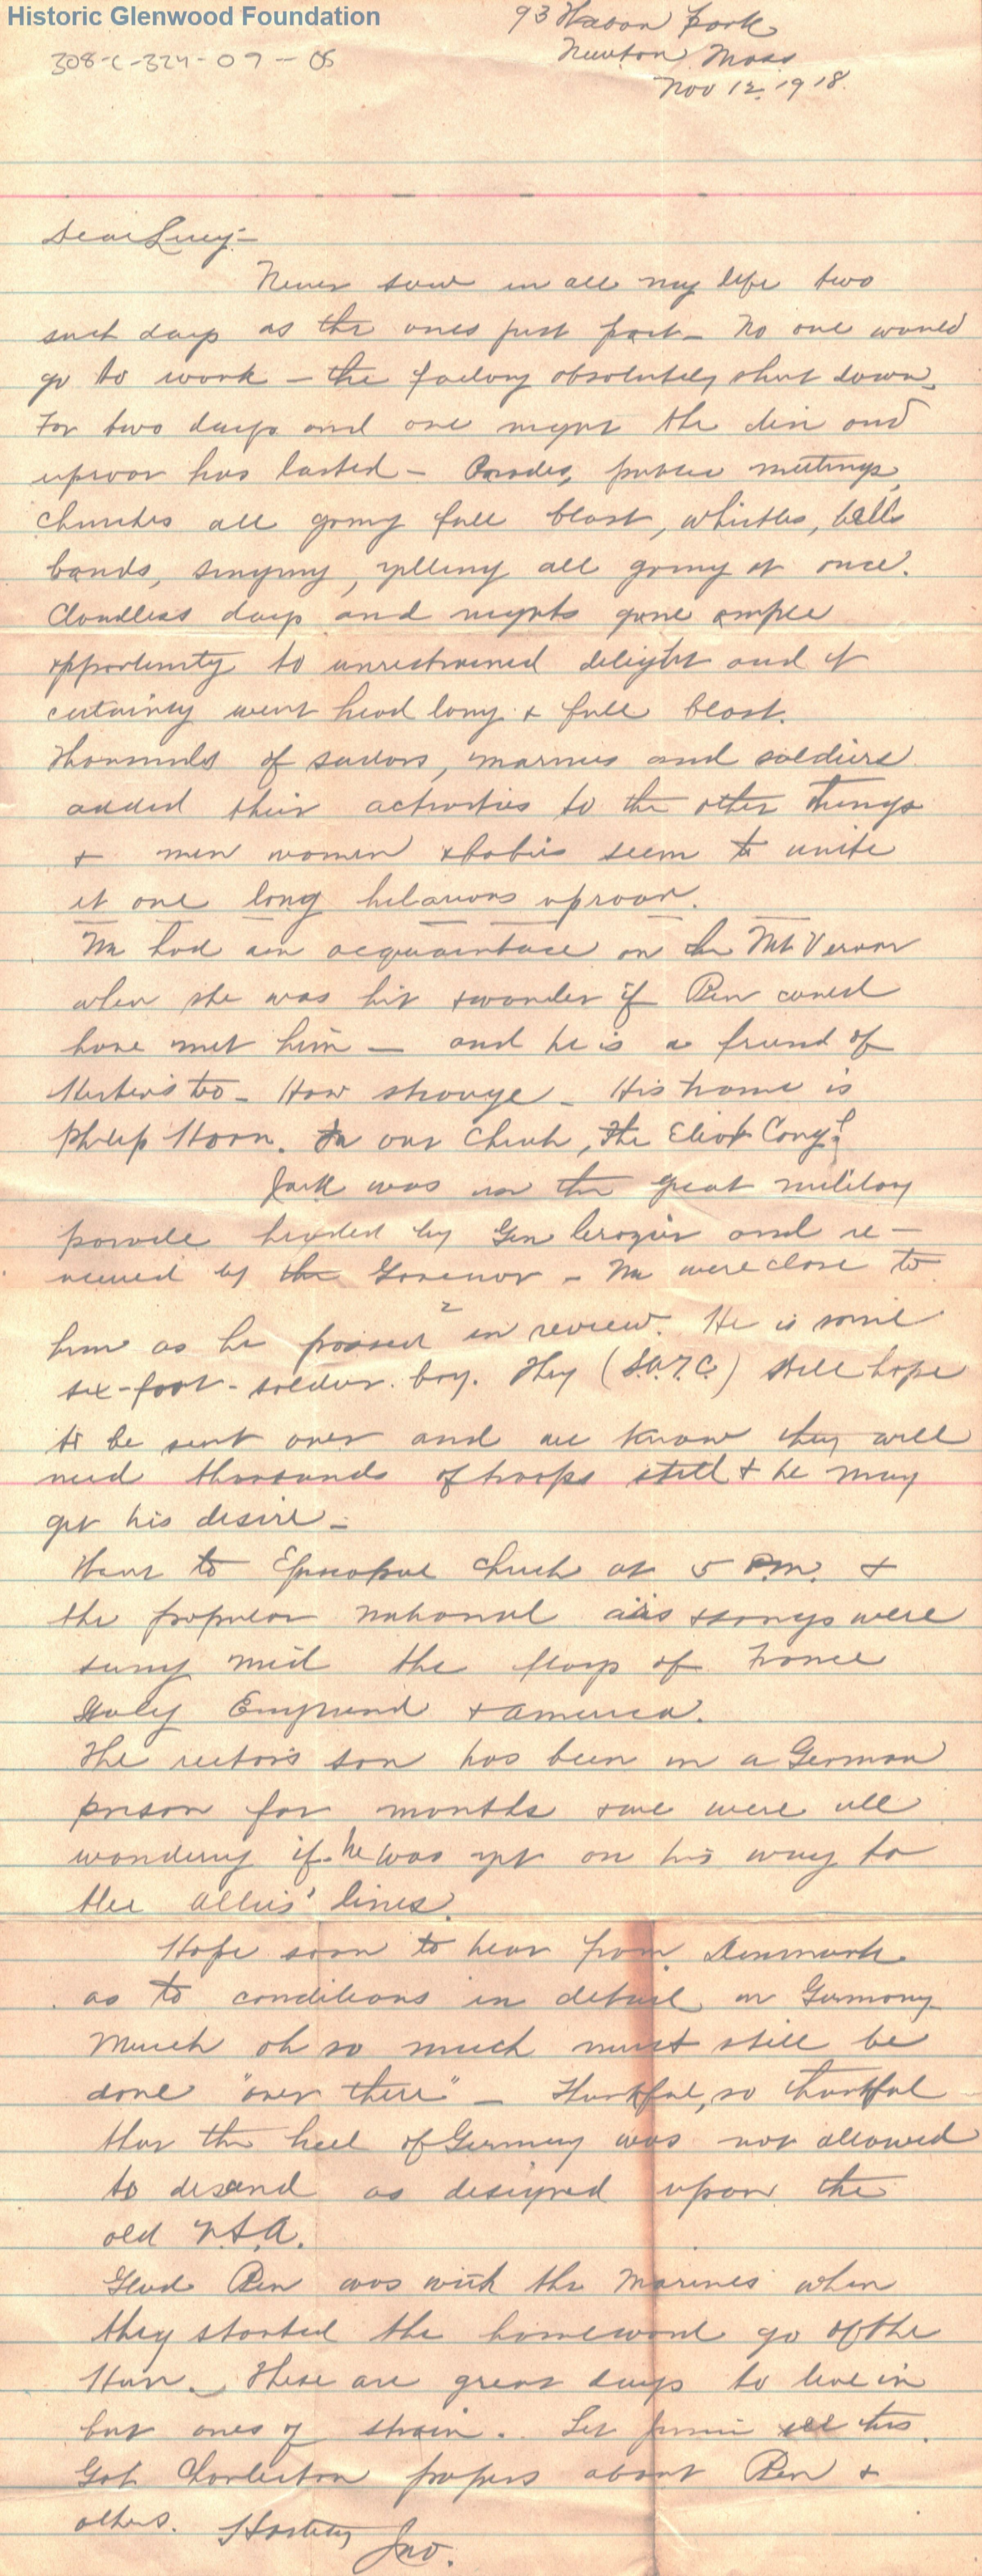 Historic Glenwood Foundation
308-C-324-07-05
93 Park
Newton Mass
Nov 12, 1918
Dear Lucy:-
Never saw in all my life two
such days as the ones just past - No one would
go to work - the factory absolutely shut down.
For two days and one night the din and
uproar has lasted - Parades, public meetings,
churches all going full blast, whistles, bells
bands, singing, yelling all going at once.
Cloudless days and nights gave ample
opportunity to unrestrained delight and it
certainly went head long & full blast.
Thousands of sailors, marines and soldiers
added their activities to the other things
& men women & babies seem to unite
it one long hilarious uproar.
We had an acquaintance on the Mt Vernon
when she was hit & wonder if Ben could
have met him - and he is a friend of
too - How strange - His name is
Philip . In our Church, the Eliot Cong'l
Jack was in the great military
parade headed by Gen Crozier and re-
viewed by the Govenor - We were close to
2
him as he passed in review. He is some
six-foot-soldier-boy. They (S.A.T.C.) still hope
to be sent over and we know they will
need thousands of troops still & he may
get his desire -
Went to Episcopal Church at 5 P.M. &
the popular national airs & songs were
sung mid the flags of France
Italy England & America.
The rector's son has been in a German
prison for months & we were all
wondering if he was yet on his way to
the allies' lines.
Hope soon to hear from Denmark
as to conditions in detail in Germany
Much oh so much must still be
done "over there" - Thankful, so thankful
that the heel of Germany was not allowed
to descend as designed upon the
old U.S.A.
Glad Ben was with the Marines when
they started the homeward go of the
Hun. These are great days to live in
but ones of strain. Let all this
Got Charleston papers about Ben &
others. Hastily Jno.